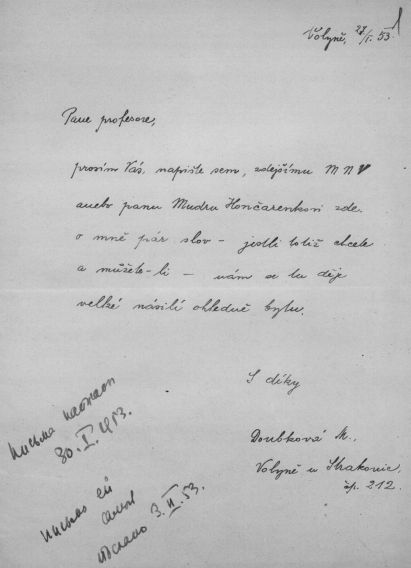 Volyně, 27/I. 53.
Pane profesore,
prosím Vás, napište sem, zdejšímu MNV
anebo panu Mudru Hončarenkovi zde
o mně pár slov – jestli totiž chcete
a můžete-li – nám se tu děje
velké násilí ohledně bytu.
S díky
Doubková M.,
Volyně u Strakonic,
čp. 212.
30. I. 1953.
Письмо ей
3. II. 53.